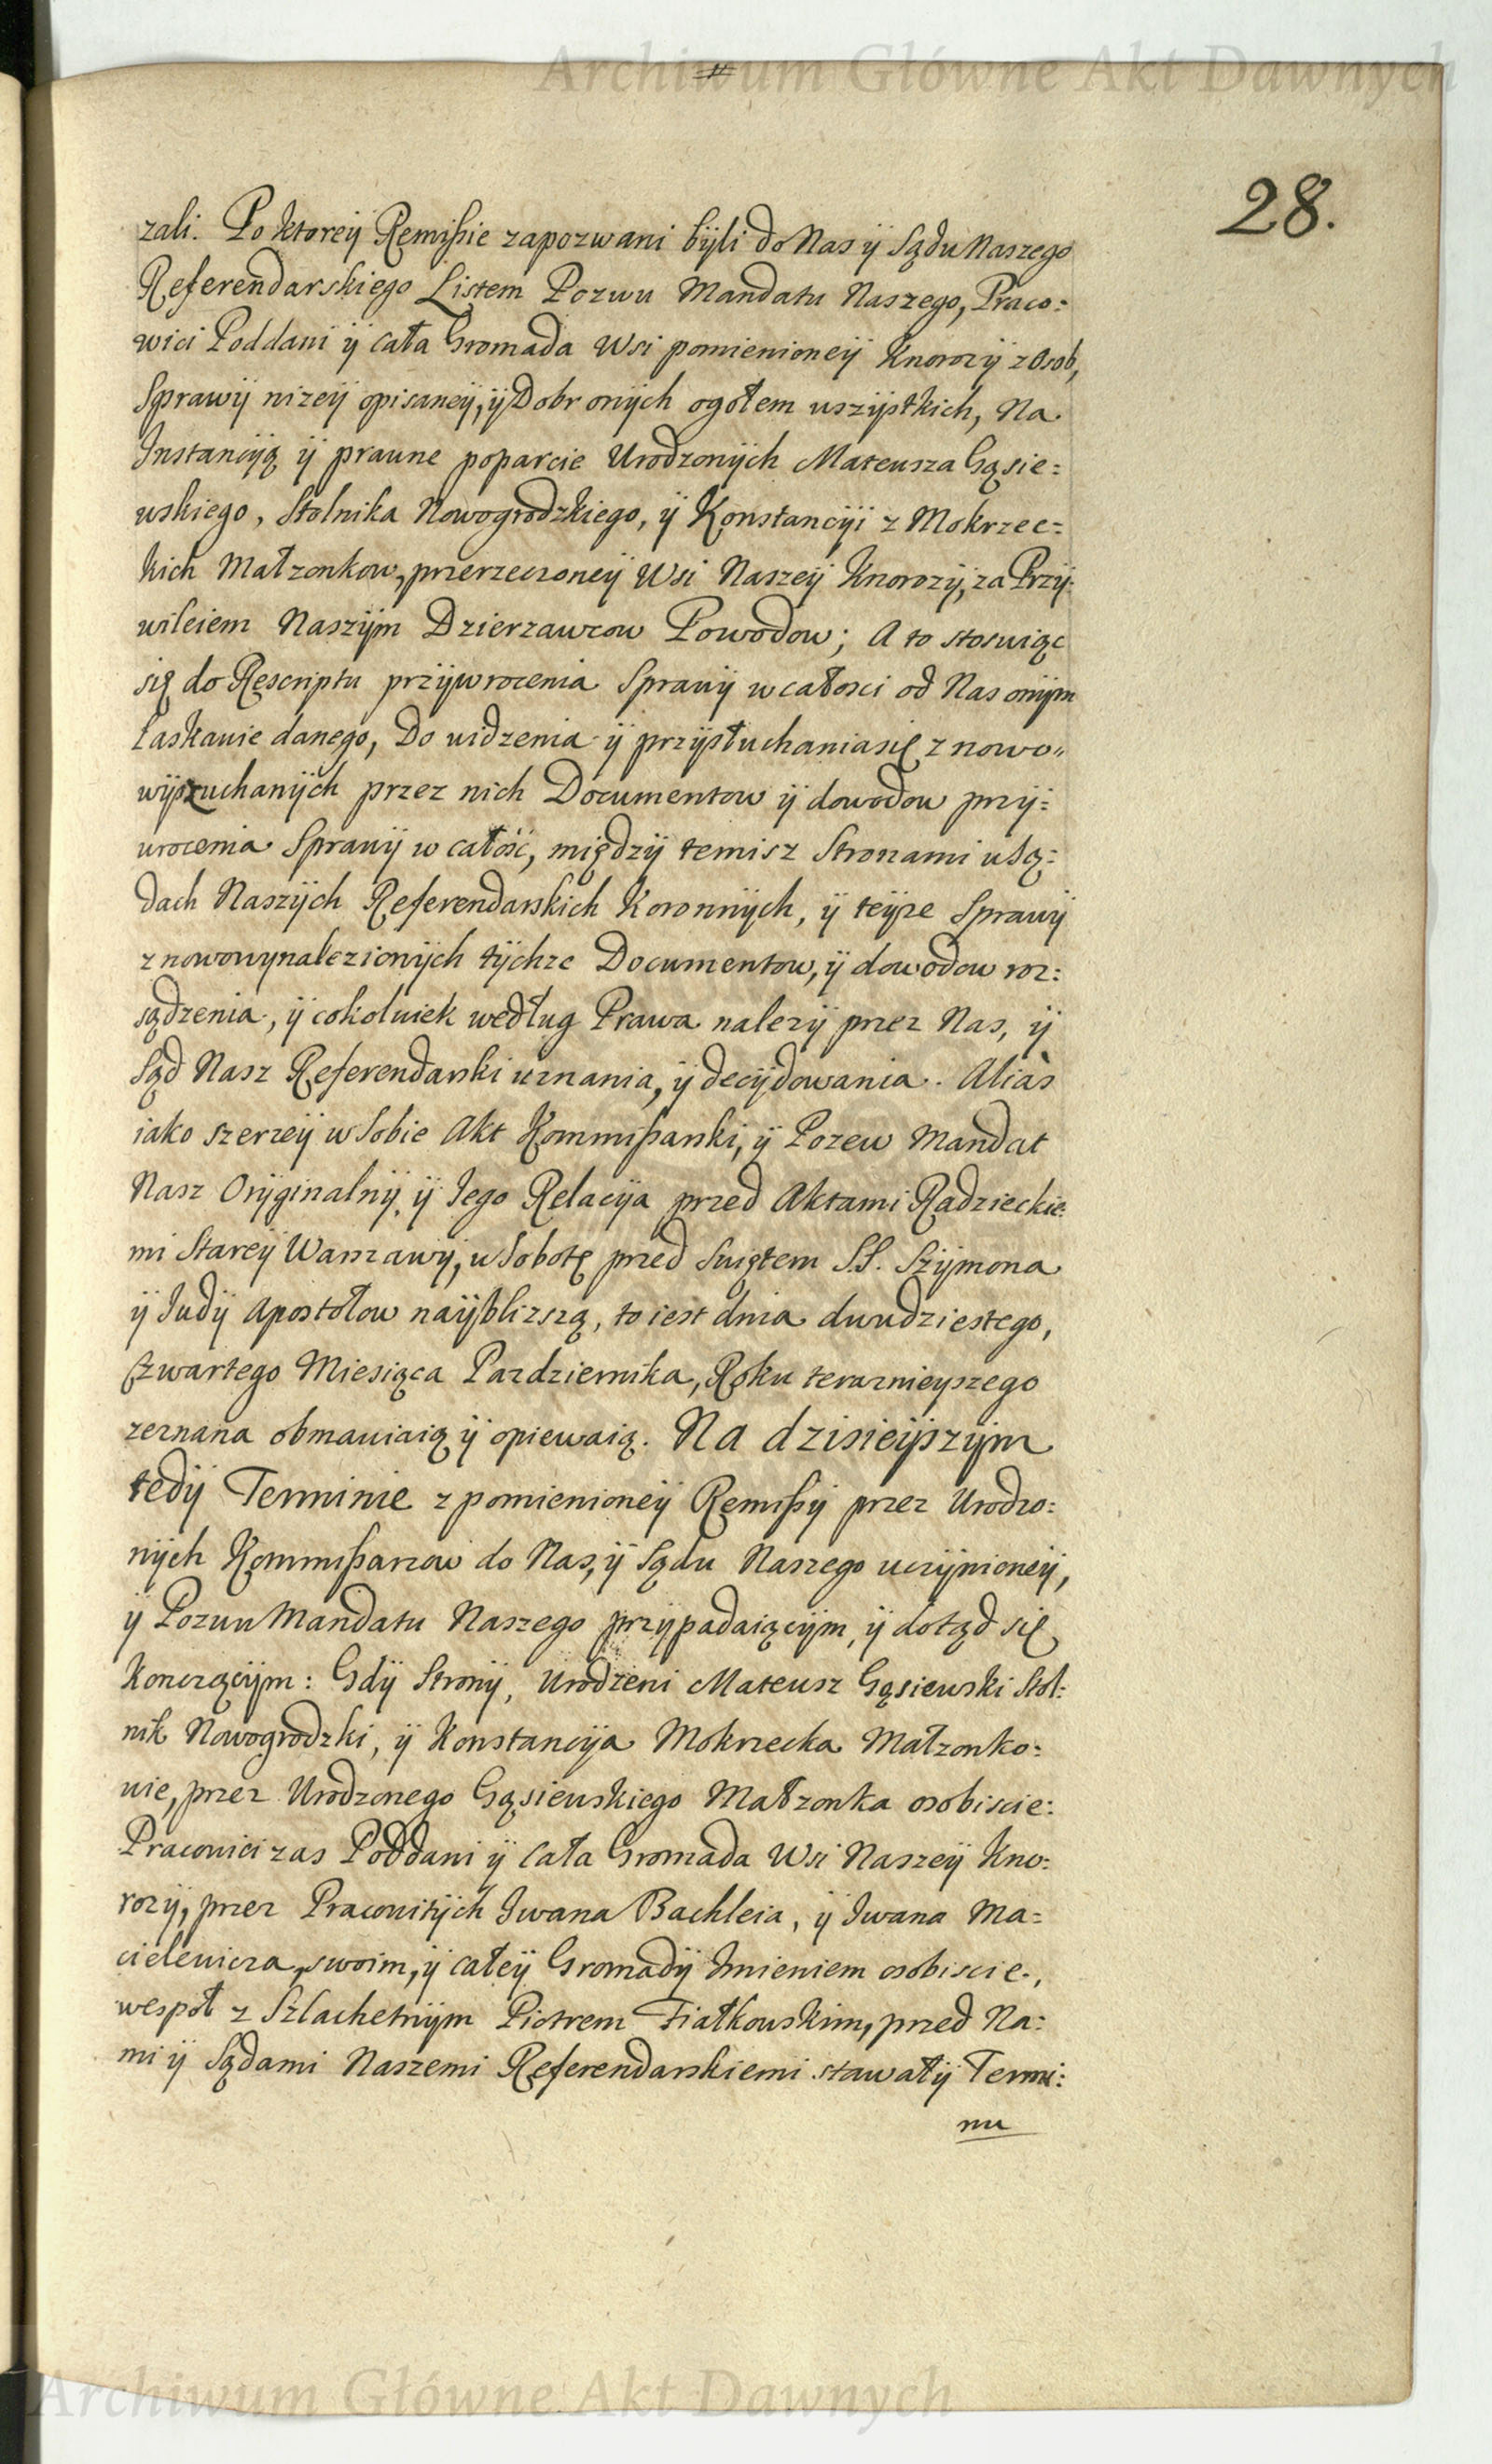 Archiwum Główne Akt Dawnych
28.
zali. Po ktoreÿ Remißie zapozwani bÿli do Nas ÿ Sądu Naszego
Referendarskiego Listem Pozwu Mandatu Naszego, Praco:
wici Poddani ÿ cała Gromada Wsi pomienioneÿ Knorozÿ z Osob,
Sprawÿ nizeÿ opisaneÿ, ÿ Dobr onÿch ogołem wszÿstkich, Na
Instancÿą ÿ prawne poparcie Urodzonÿch Mateusza Gąsie:
wskiego, Stolnika Nowogrodzkiego, ÿ Konstancÿi z Mokrzec:
kich Małzonkow, przerzeczoneÿ Wsi Naszeÿ Knorozÿ, za Przÿ:
wileiem Naszÿm Dzierzawcow Powodow; A to stosuiąc
się do Rescriptu przÿwrocenia Sprawÿ w całosci od Nas onÿm
łaskawie danego, Do widzenia ÿ przÿsłuchania się z nowo„
wÿszuchanÿch przez nich Documentow ÿ dowodow przÿ:
wrocenia Sprawÿ w całość, międzÿ temisz Stronami w Są:
dach Naszÿch Referendarskich Koronnÿch, ÿ teÿze Sprawÿ
z nowowynalezionÿch tÿchze Documentow, ÿ dowodow roz:
sądzenia, ÿ cokolwiek według Prawa nalezÿ przez Nas, ÿ
Sąd Nasz Referendarski uznania, ÿ decÿdowania. Aliàs
iako szerzeÿ w Sobie Akt Kommißarski, ÿ Pozew Mandat
Nasz Orÿginalnÿ, ÿ Jego Relacÿa przed Aktami Radzieckie:
mi Stareÿ Warszawÿ, w Sobotę przed Swiętem S.S. Szÿmona
ÿ Judÿ Apostołow naÿblizszą, to iest dnia dwudziestego,
Czwartego Miesiąca Pazdziernika, Roku terazniejszego
zeznana obmawiaią ÿ opiewaią. Na dzisieÿszÿm
tedÿ Terminie z pomienioneÿ Remißÿ przez Urodzo:
nÿch Kommißarzow do Nas, ÿ Sądu Naszego uczÿnioneÿ,
ÿ Pozwu Mandatu Naszego przÿpadaiącÿm, ÿ dotąd się
Konczącÿm: Gdÿ Stronÿ, Urodzeni Mateusz Gąsiewski Stol:
nik Nowogrodzki, ÿ Konstancÿa Mokrzecka Małzonko:
wie, przez Urodzonego Gąsiewskiego Małzonka osobiscie:
Pracowici zas Poddani ÿ cała Gromada Wsi Naszeÿ Kno:
rozÿ, przez Pracowitÿch Iwana Bachleia, ÿ Iwana Ma:
cielewicza, swoim, ÿ całeÿ Gromadÿ Imieniem osobiscie,
wespoł z Szlachetnÿm Piotrem Fiałkowskim, przed Na:
mi ÿ Sądami Naszemi Referendarskiemi stawałÿ Termi:
nu
Archiwum Główne Akt Dawnych